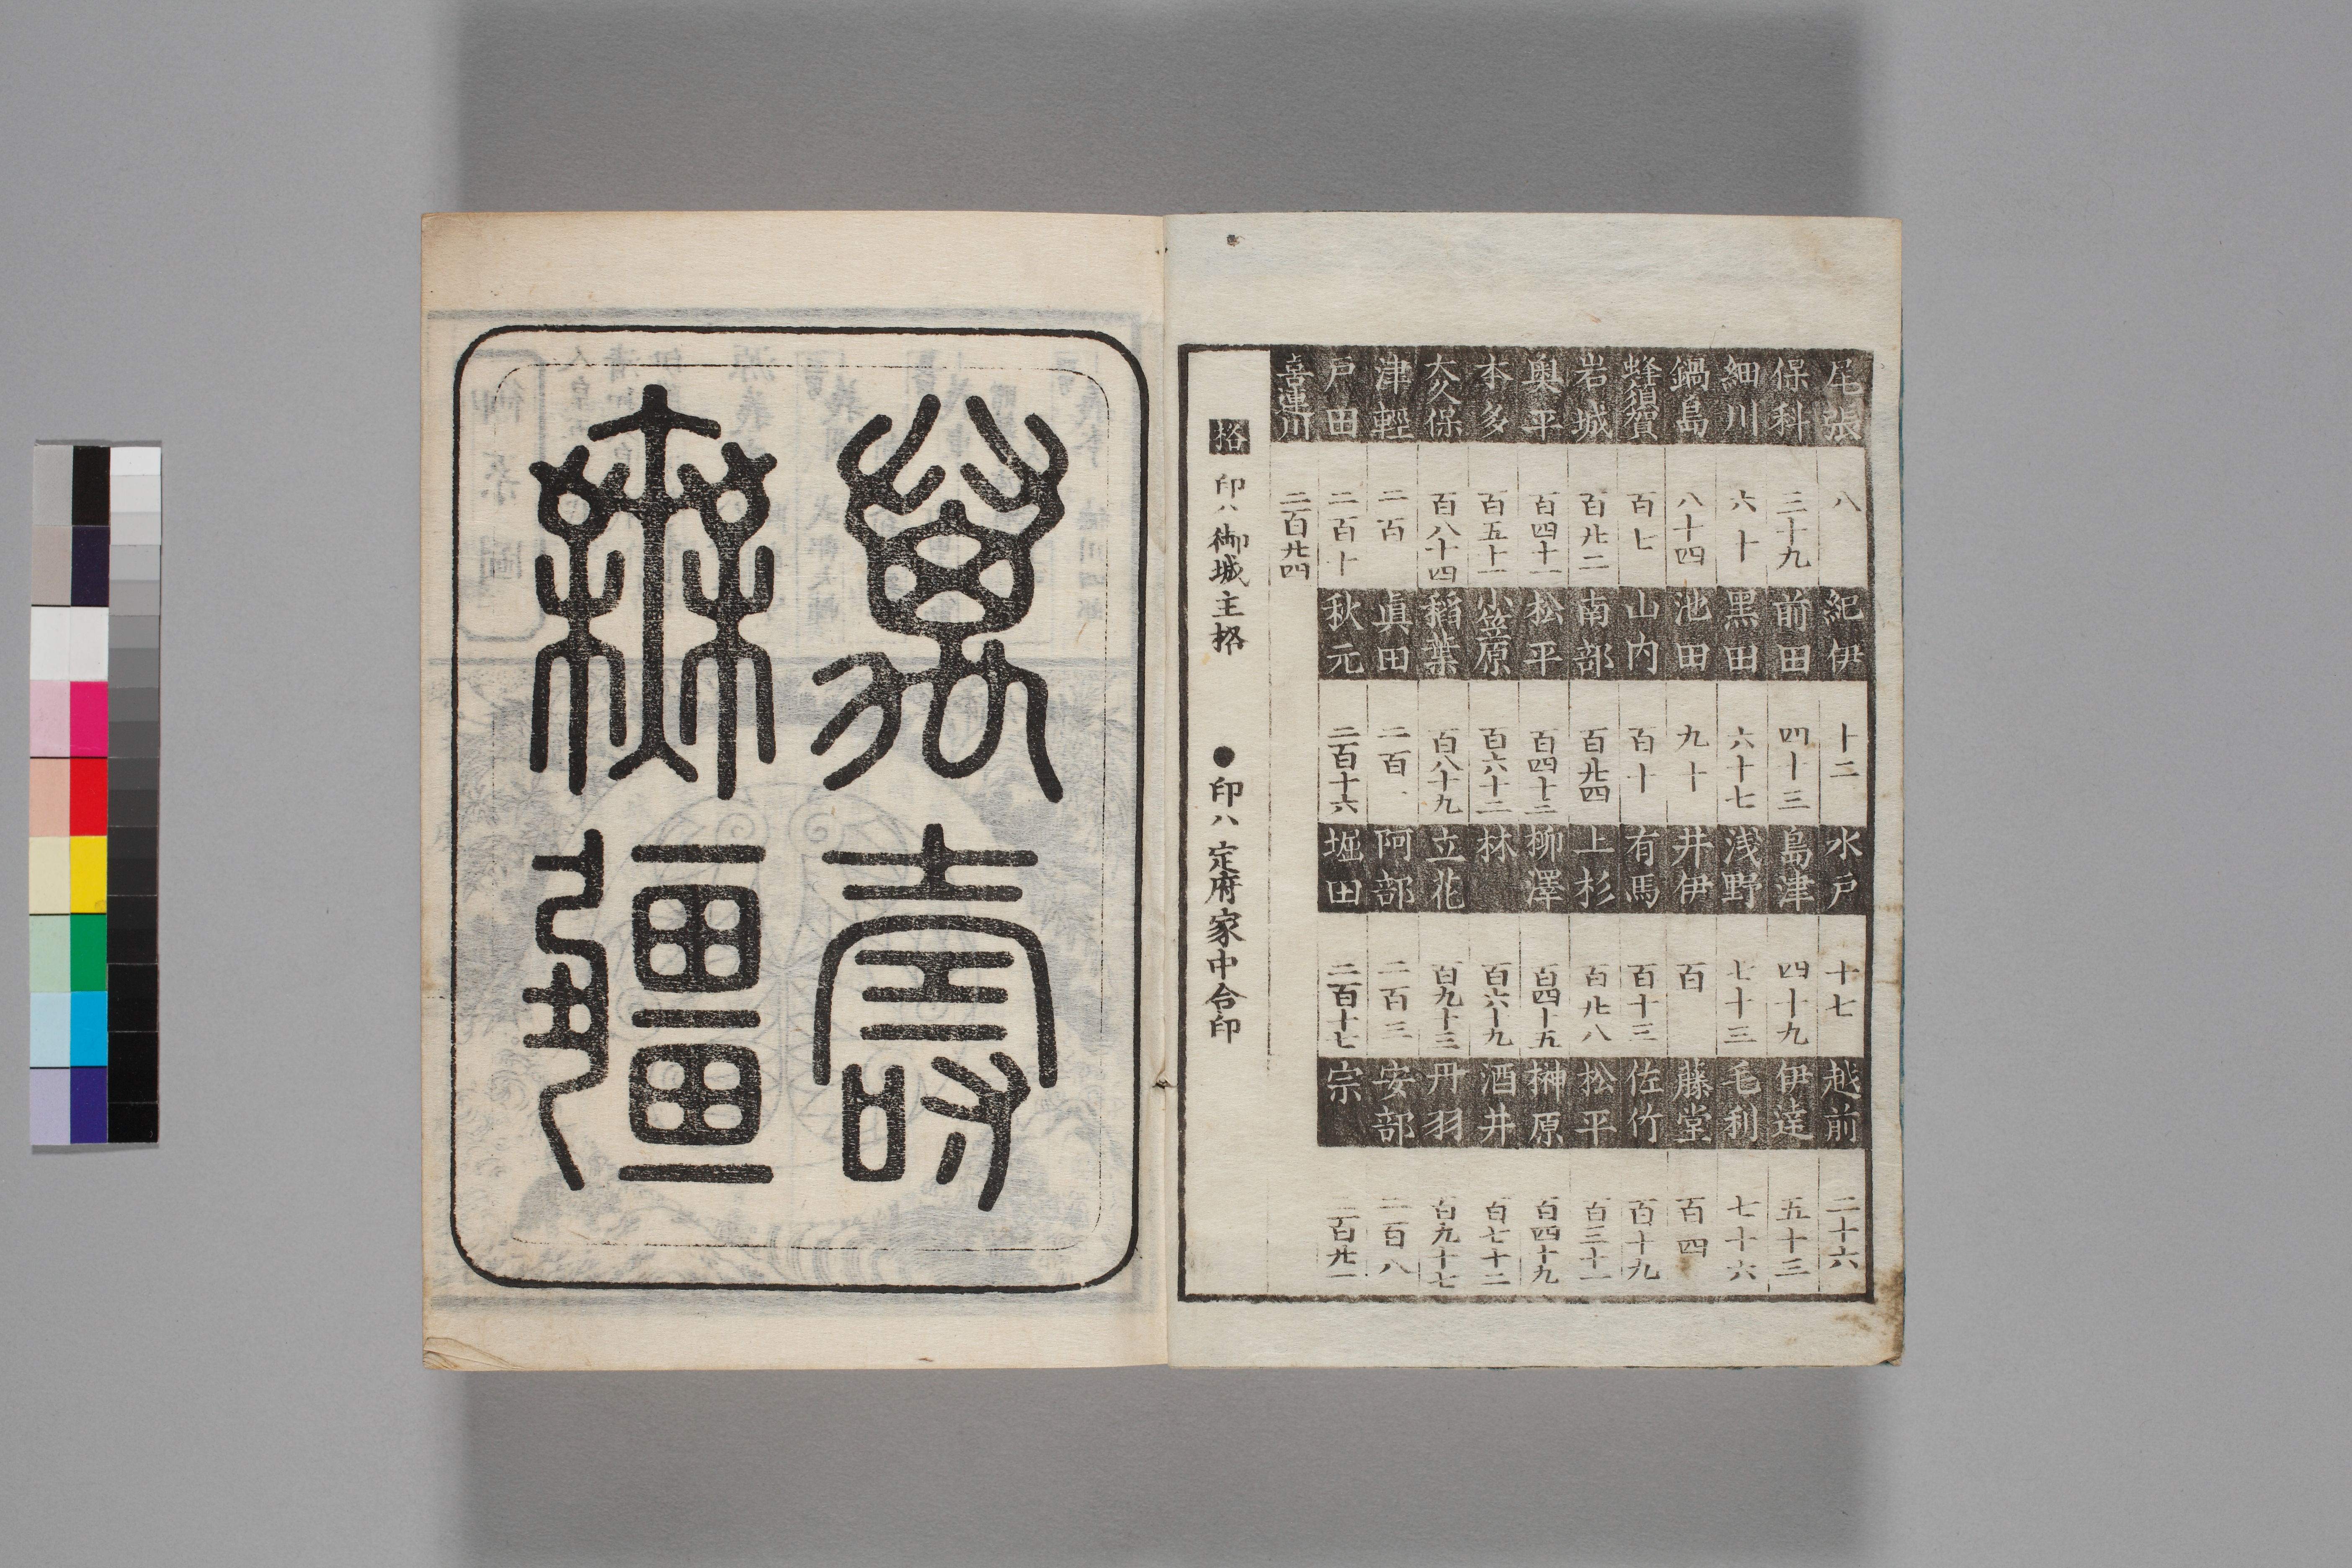 尾張 八 紀伊 十二 水戸 十七 越前 二十六
保科 三十九 前田 四十三 島津 四十九 伊達 五十三
細川 六十 黒田 六十七 浅野 七十三 毛利 七十六
鍋島 八十四 池田 九十 井伊 百 藤堂 百四
蜂須賀 百七 山内 百十 有馬 百十三 佐竹 百十九
岩城 百廾二 南部 百廾四 上杉 百廾八 松平 百三十一
奥平 百四十一 松平 百四十三 柳澤 百四十五 榊原 百四十九
本多 百五十一 小笠原 百六十二 林 百六十九 酒井 百七十二
大久保 百八十四 稲葉 百八十九 立花 百九十三 丹羽 百九十七
津輕 二百 眞田 二百 阿部 二百三 安部 二百八
戸田 二百十 秋元 二百十六 堀田 二百十七 宗 二百廾一
喜連川 二百廾四
格 印ハ御城主格 ●印ハ定府家中合印
萬壽
無疆